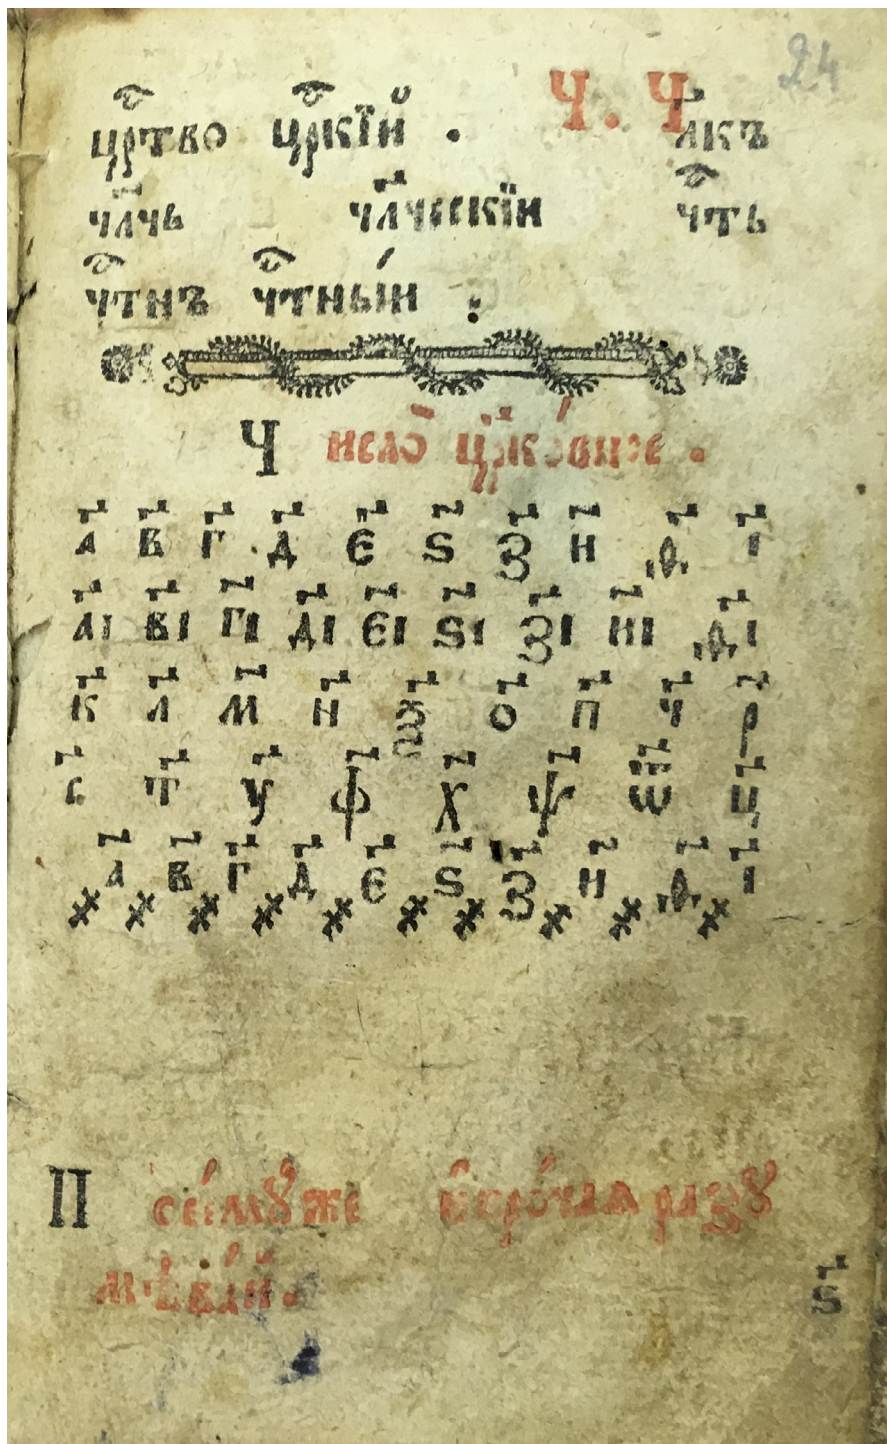 24
цр҃тво цр҃кїй . Ч . Ч л҃къ
чл҃чь чл҃чєскїи чт҃ь
чт҃нъ чт҃ны́и :
Число̑ цр҃ко́вное .
а҃ в҃ г҃ д҃ є҃ ѕ҃ з҃ и҃ ѳ҃ і҃
а҃і в҃і г҃і д҃і є҃і ѕ҃і з҃і и҃і ѳ҃і
к҃ л҃ м҃ н҃ ѯ҃ о҃ п҃ ч҃ р҃
с҃ т҃ у҃ ф҃ х҃ ѱ҃ ѿ҃ ц҃
҂а҃ ҂в҃ ҂г҃ ҂д҃ ҂є҃ ҂ѕ҃ ҂з҃ ҂и҃ ҂ѳ҃ ҂і҃
П се́мꙋже и҆ про́чаѧ разꙋ
мѣва́й .
ѕ҃